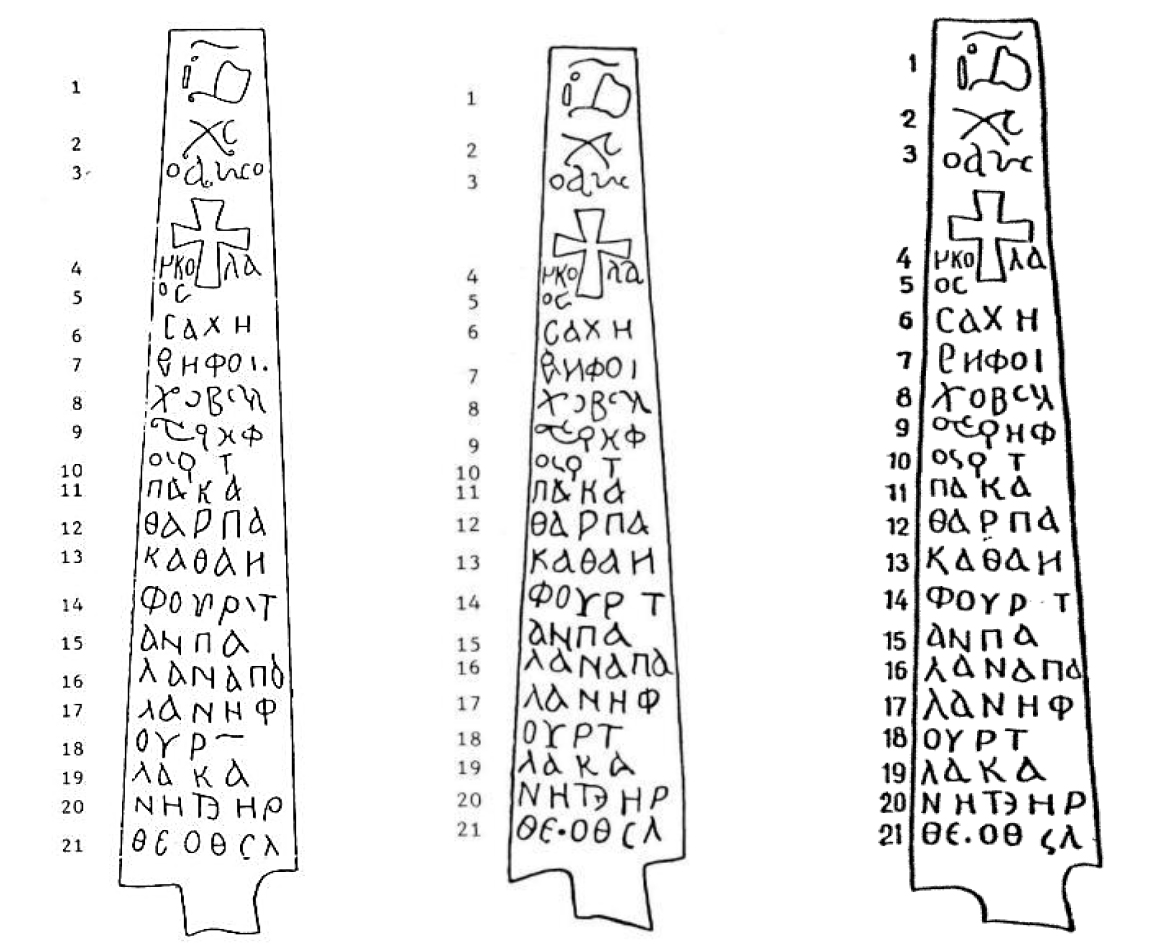 1 ῑς̄
2 χς
3 οαγιсο
4 ΝΚΟ λα
5 ος
6 СΑΧΗ
7 ϱΗΦΟΙ.
8 ΧΟΒС
9 ΤϙΗΦ
10 ΟςϙΤ
11 ΠΑΚΑ
12 ΘΑΡΠΑ
13 ΚΑΘΑΗ
14 ΦΟΥΡΙΤ
15 ΑΝΠΑ
16 λΑΝΑΠΑ
17 λΑΝΗΦ
18 ΟΥΡΤ
19 λΑΚΑ
20 ΝΗΤЭΗΡ
21 ΘΕΟΘςλ
1 ῑς̄
2 χς
3 οαγις
4 ΝΚΟ λα
5 ος
6 СΑΧΗ
7 ϱΗΦΟΙ
8 ΧΟΒС
9 ΤϙΗΦ
10 ΟςϙΤ
11 ΠΑΚΑ
12 ΘΑΡΠΑ
13 ΚΑΘΑΗ
14 ΦΟΥΡΤ
15 ΑΝΠΑ
16 λΑΝΑΠΑ
17 λΑΝΗΦ
18 ΟΥΡΤ
19 λΑΚΑ
20 ΝΗΤЭΗΡ
21 ΘΕ·ΟΘςλ
1 ῑς̄
2 χς
3 οαγις
4 ΝΚΟ λα
5 ος
6 СΑΧΗ
7 ϱΗΦΟΙ
8 ΧΟΒС
9 ΤϙΗΦ
10 ΟςϙΤ
11 ΠΑΚΑ
12 ΘΑΡΠΑ
13 ΚΑΘΑΗ
14 ΦΟΥΡΤ
15 ΑΝΠΑ
16 λΑΝΑΠΑ
17 λΑΝΗΦ
18 ΟΥΡΤ
19 λΑΚΑ
20 ΝΗΤЭΗΡ
21 ΘΕ·ΟΘςλ